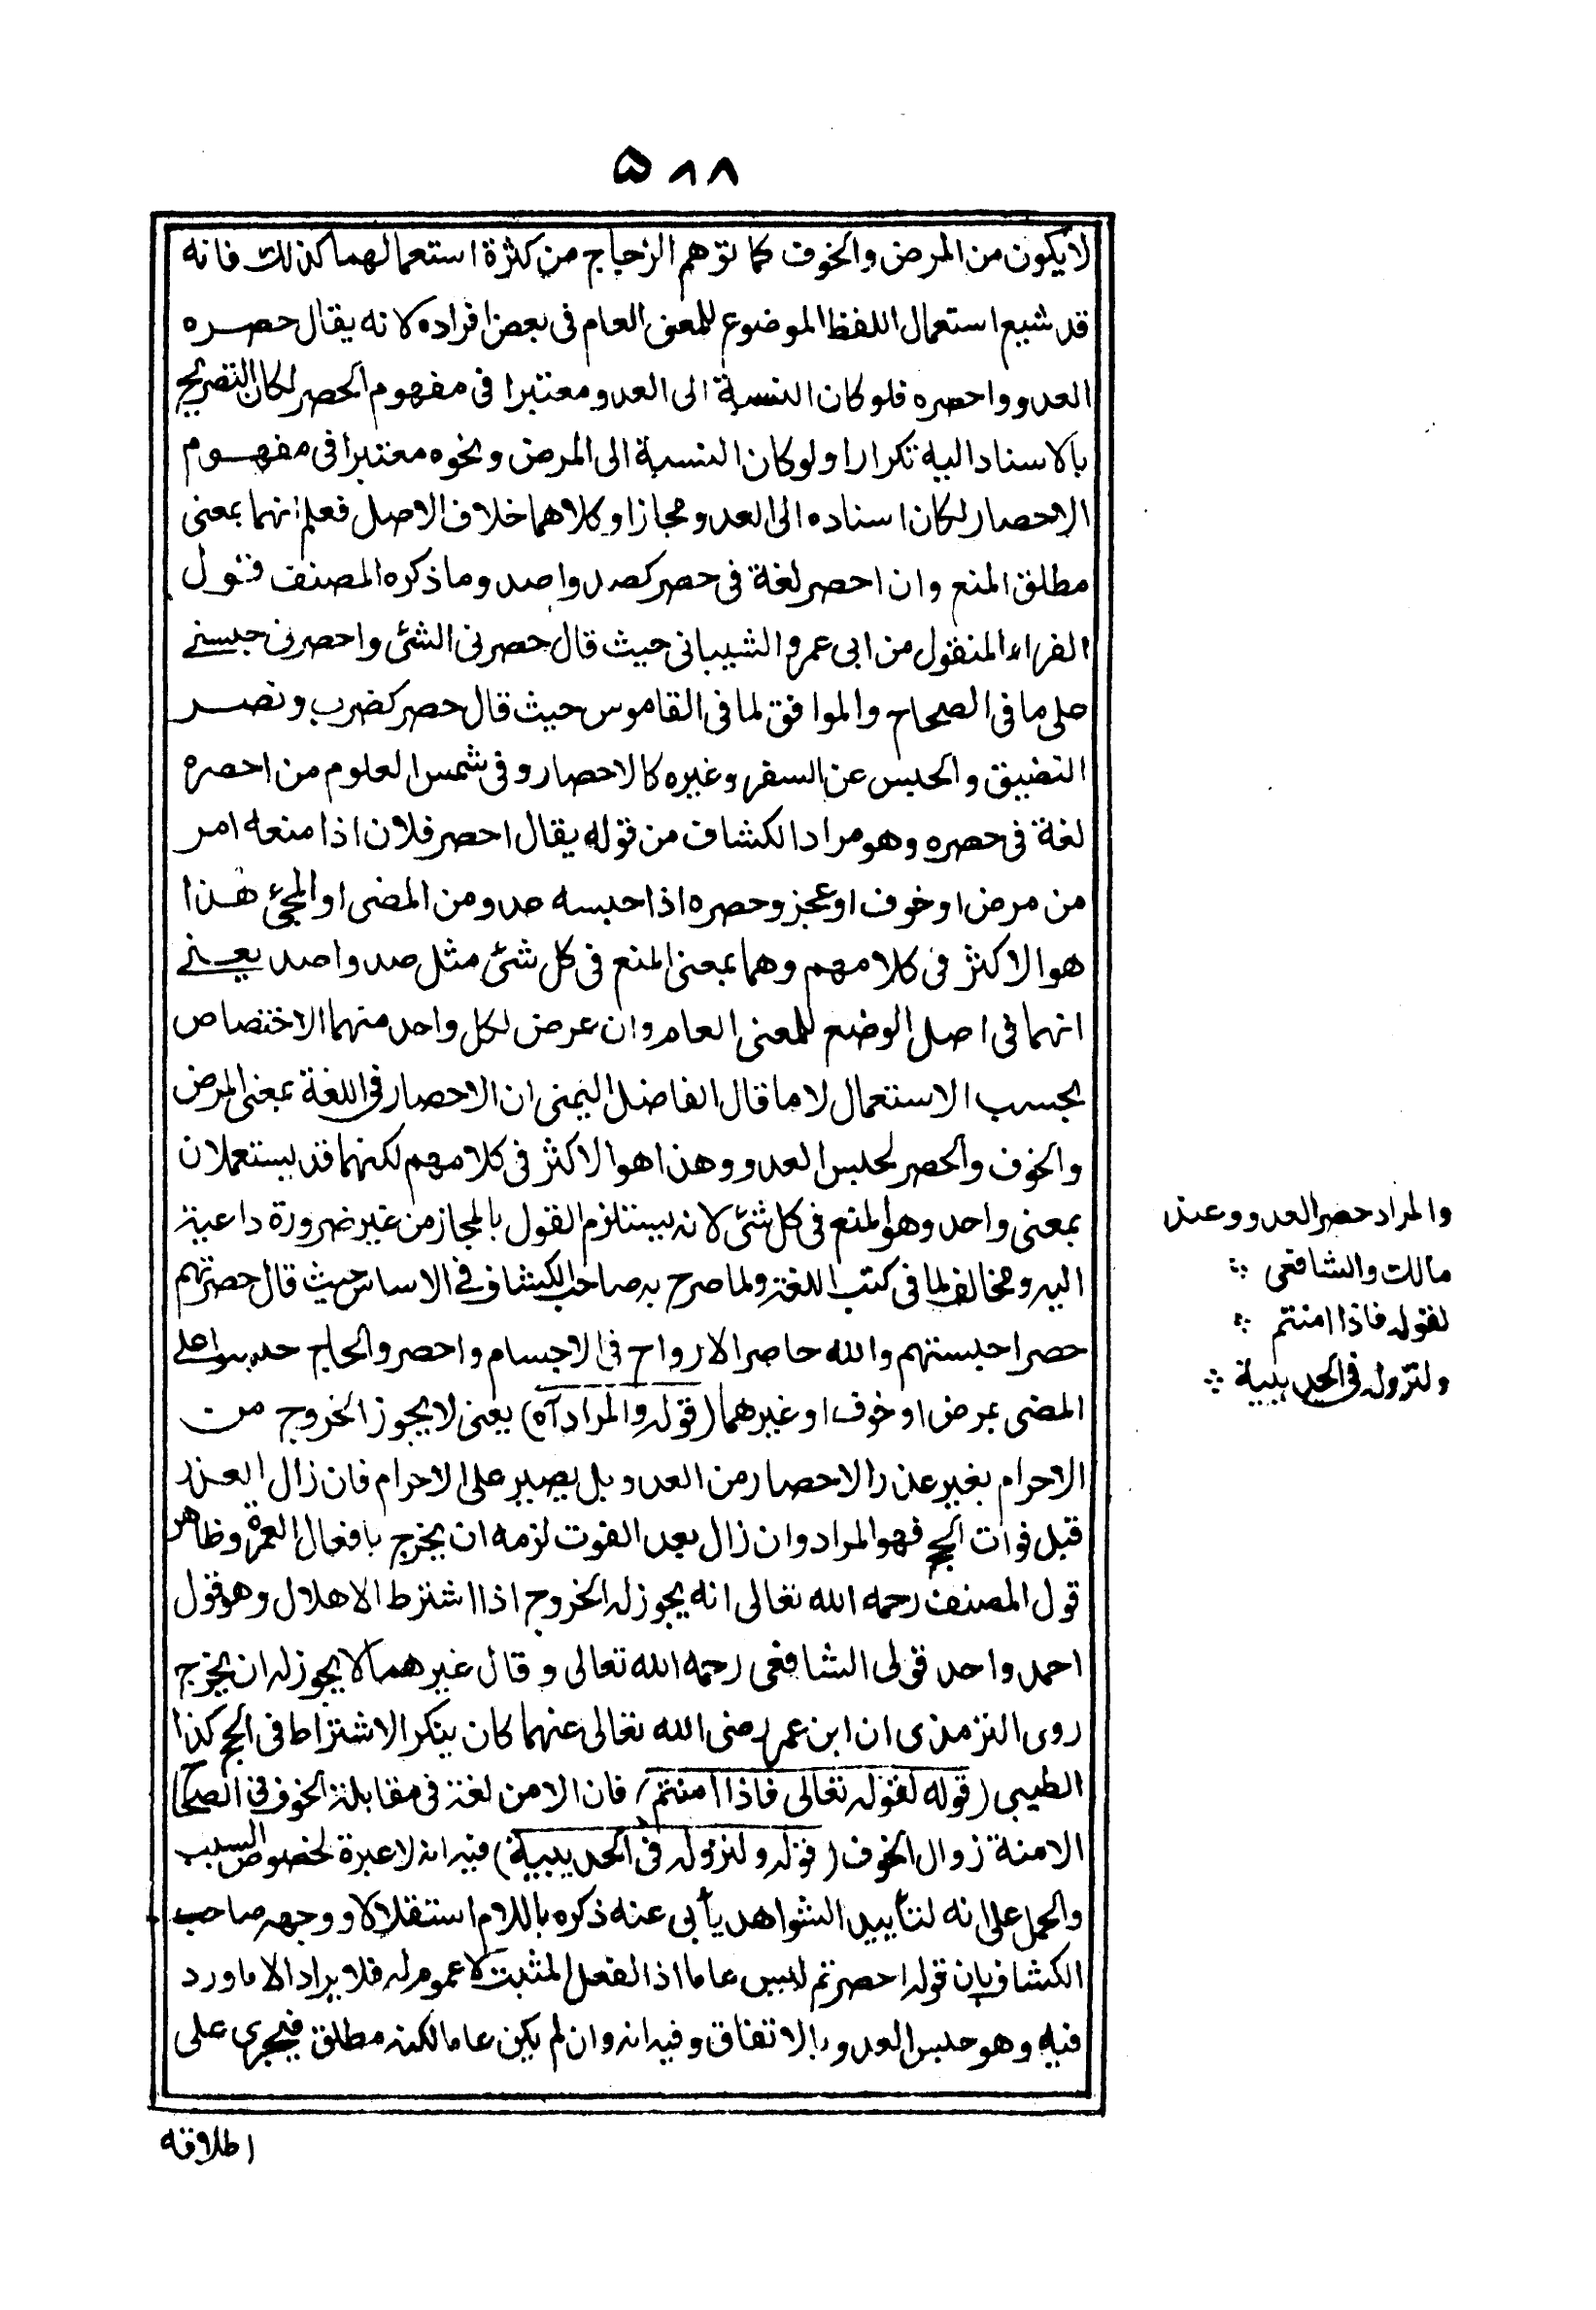 ٥٨٨
لا يكون من المرض والخوف كما توهم الزجاج من كثرة استعمالهما كذلك فانه
قد شيع استعمال اللفظ الموضوع للمعنى العام فى بعض افراده لانه يقال حصره
العدو واحصره فلو كان النسبة الى العدو معتبرا فى مفهوم الحصر لكان التصريح
بالاسناد اليه تكرارا ولو كان النسبة الى المرض ونحوه معتبرا فى مفهوم
الاحصار لكان اسناده الى العدو مجازا وكلاهما خلاف الاصل فعلم انهما بمعنى
مطلق المنع وان احصر لغة فى حصر كصد واصد وما ذكره المصنف قول
الفراء المنقول من ابى عمرو الشيبانى حيث قال حصرنى الشئ واحصرنى حبسنے
على ما فى الصحاح والموافق لما فى القاموس حيث قال حصر كضرب ونصر
التضييق والحبس عن السفر وغيره كالاحصار وفى شمس العلوم من احصره
لغة فى حصره وهو مراد الكشاف من قوله يقال احصر فلان اذا منعه امر
من مرض او خوف او عجز وحصره اذا حبسه عدو من المضى او المجئ هذا
هو الاكثر فى كلامهم وهما بمعنى المنع فى كل شئ مثل صد واصد يعنے
انهما فى اصل الوضع للمعنى العام وان عرض لكل واحد منهما الاختصاص
بحسب الاستعمال لا ما قال الفاضل اليمنى ان الاحصار فى اللغة بمعنى المرض
والخوف والحصر لحبس العدو وهذا هو الاكثر فى كلامهم لكنهما قد يستعملان
بمعنى واحد وهو المنع فى كل شئ لانه يستلزم القول بالمجاز من غير ضرورة داعية
اليه ومخالف لما فى كتب اللغة ولما صرح به صاحب الكشاف فے الاساس حيث قال حصرتهم
حصرا حبستهم والله حاصر الارواح فى الاجسام واحصر والحاج حبسوا على
المضى بمرض او خوف او غيرهما (قوله والمراد آه) يعنى لا يجوز الخروج من
الاحرام بغير عذر الاحصار من العدو بل يصبر على الاحرام فان زال العذر
قبل فوات الحج فهو المراد وان زال بعد الفوت لزمه ان يخرج بافعال العمرة وظاهر
قول المصنف رحمه الله تعالى انه يجوز له الخروج اذا اشترط الاهلال وهو قول
احمد واحد قولى الشافعى رحمه الله تعالى وقال غيرهما لا يجوز له ان يخرج
روى الترمذى ان ابن عمر رضى الله تعالى عنهما كان ينكر الاشتراط فى الحج كذا
الطيبى (قوله لقوله تعالى فاذا امنتم) فان الامن لغة فى مقابلة الخوف فى الصحاح
الامنة زوال الخوف (قوله ولنزوله فى الحديبية) فيه انه لا عبرة لخصوص السبب
والحمل على انه لتأييد الشواهد يأبى عنه ذكره باللام استقلالا ووجهه صاحب
الكشاف بان قوله احصرتم ليس عاما اذ الفعل المثبت لا عموم له فلا يراد الا ما ورد
فيه وهو حبس العدو بالاتفاق وفيه انه وان لم يكن عاما لكنه مطلق فيجرى على
اطلاقه
والمراد حصر العدو وعند
مالك والشافعى
لقوله فاذا امنتم
ولنزوله فى الحديبية